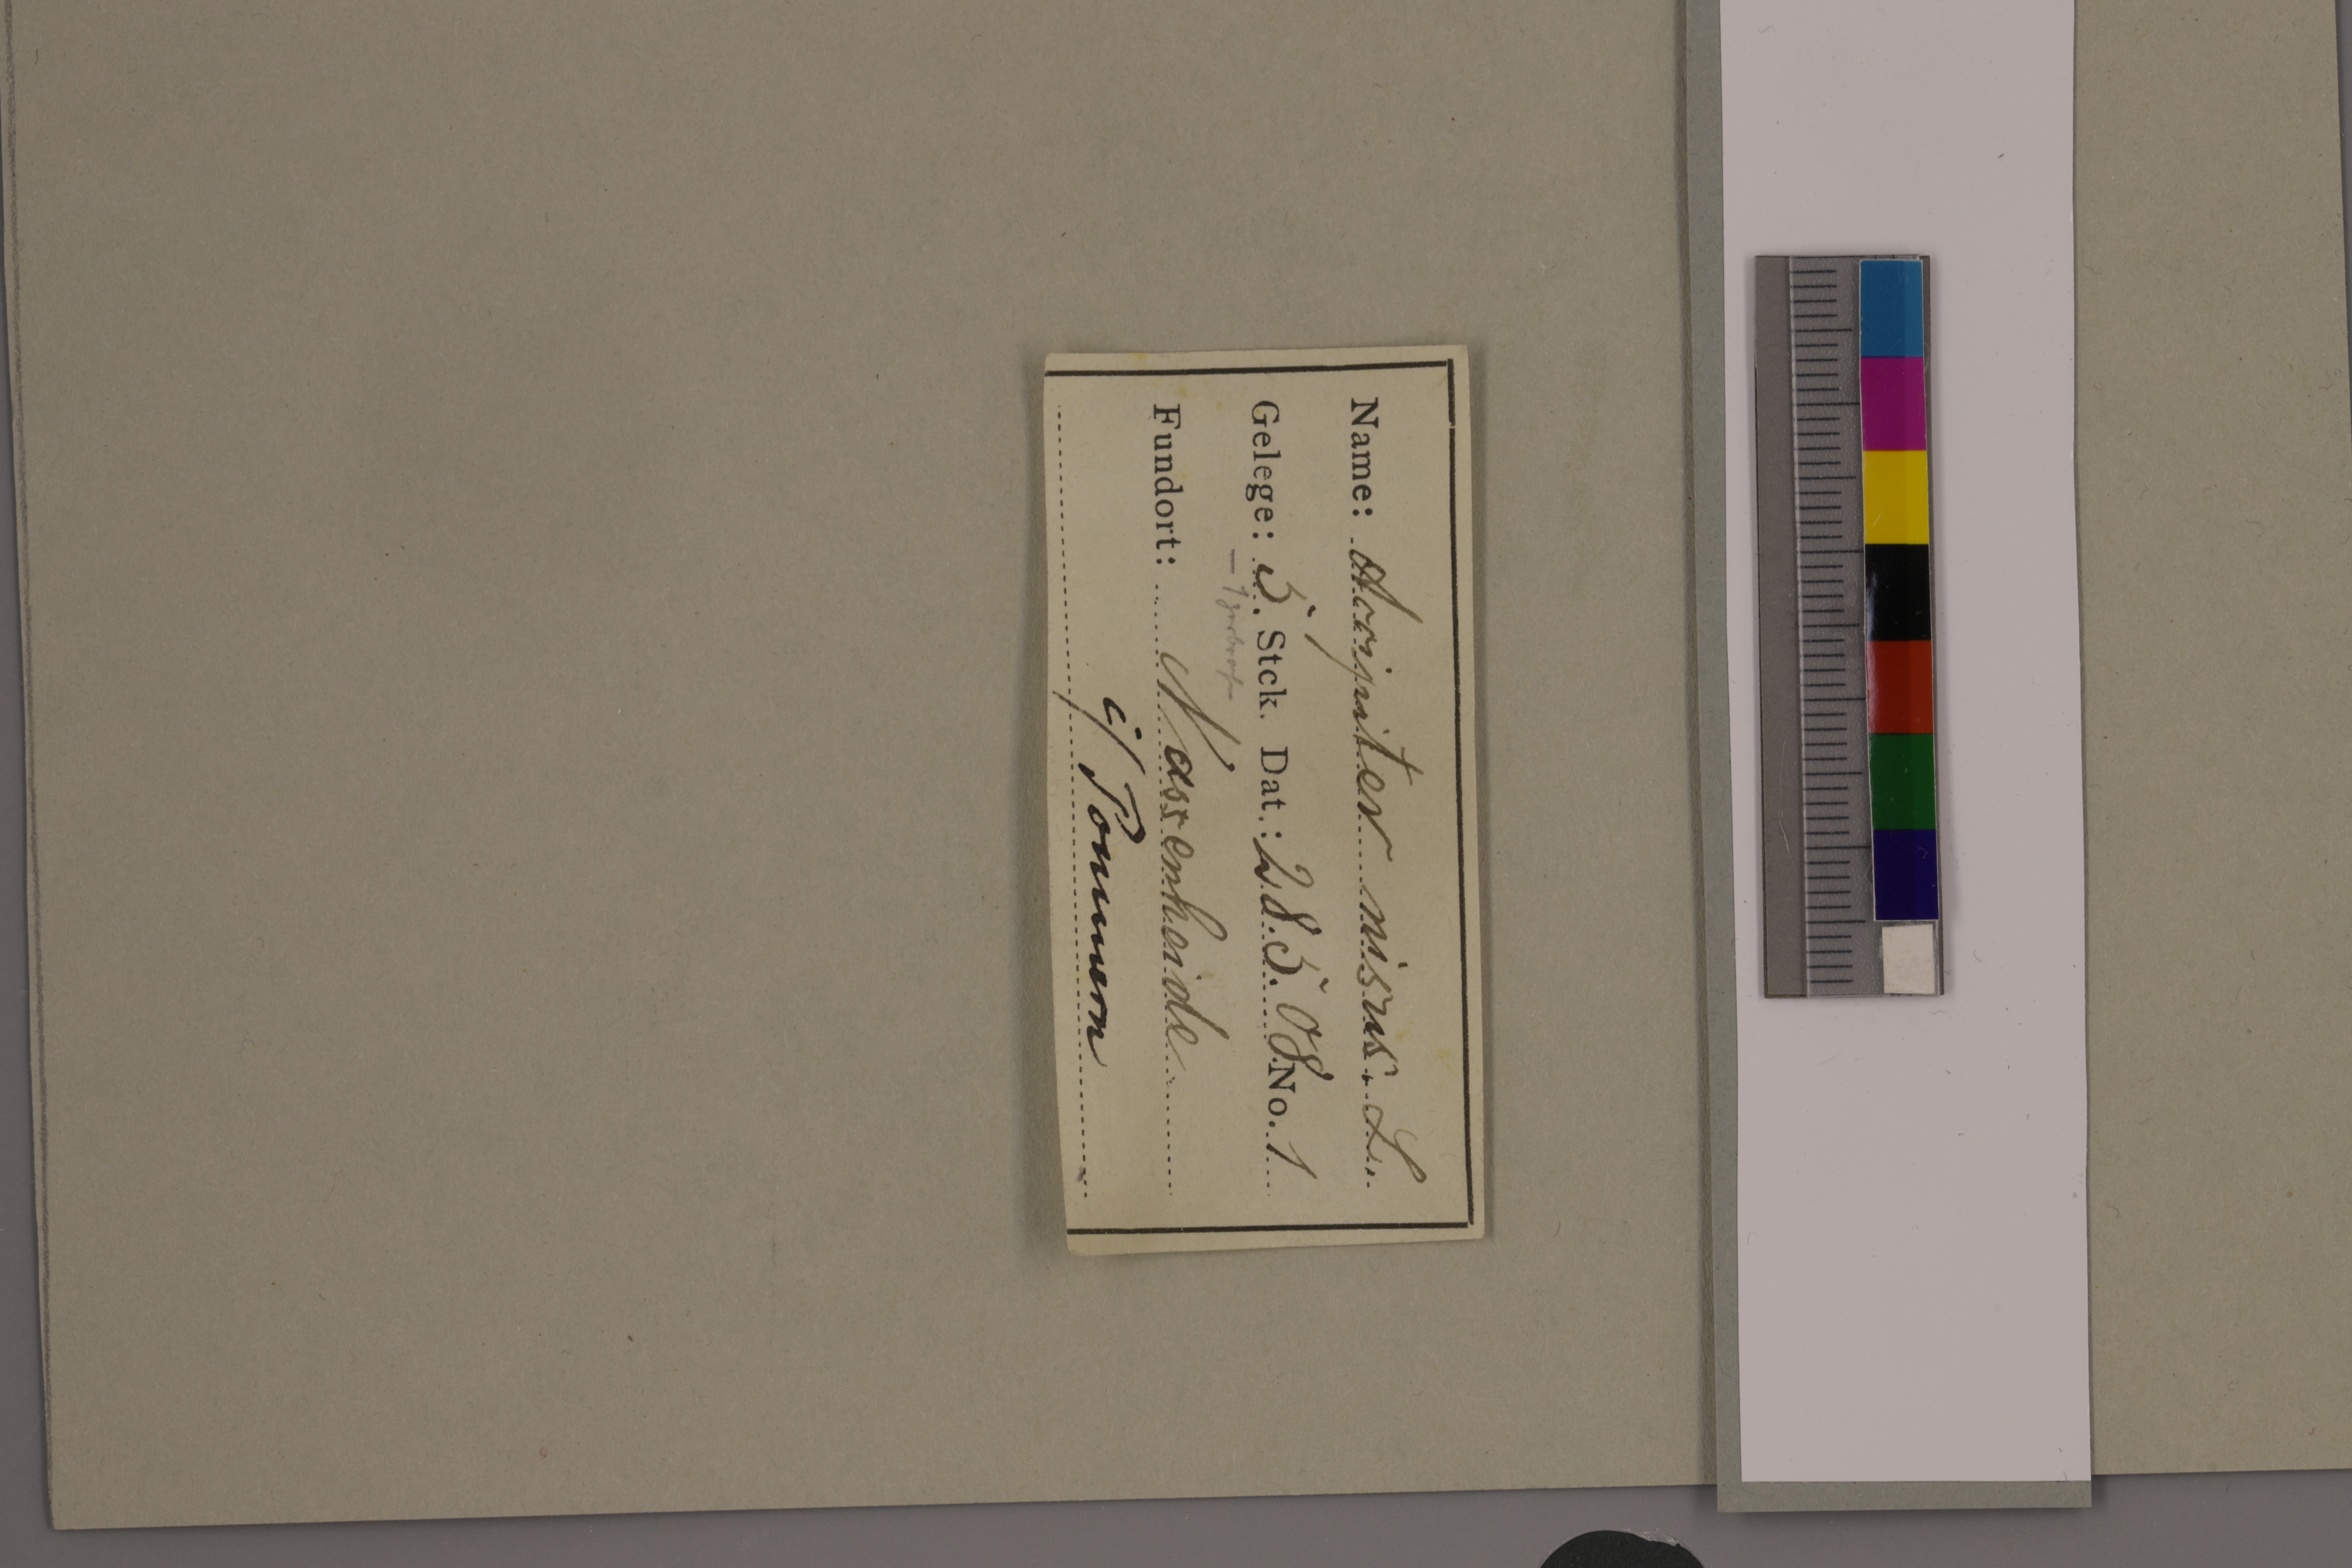 Name: Accipiter nisus. L.
Gelege: 5. Stck. Dat.: 28.5.08 No. 1
– 1 zerbrochen
Fundort: Nassenheide
i/ Pommern